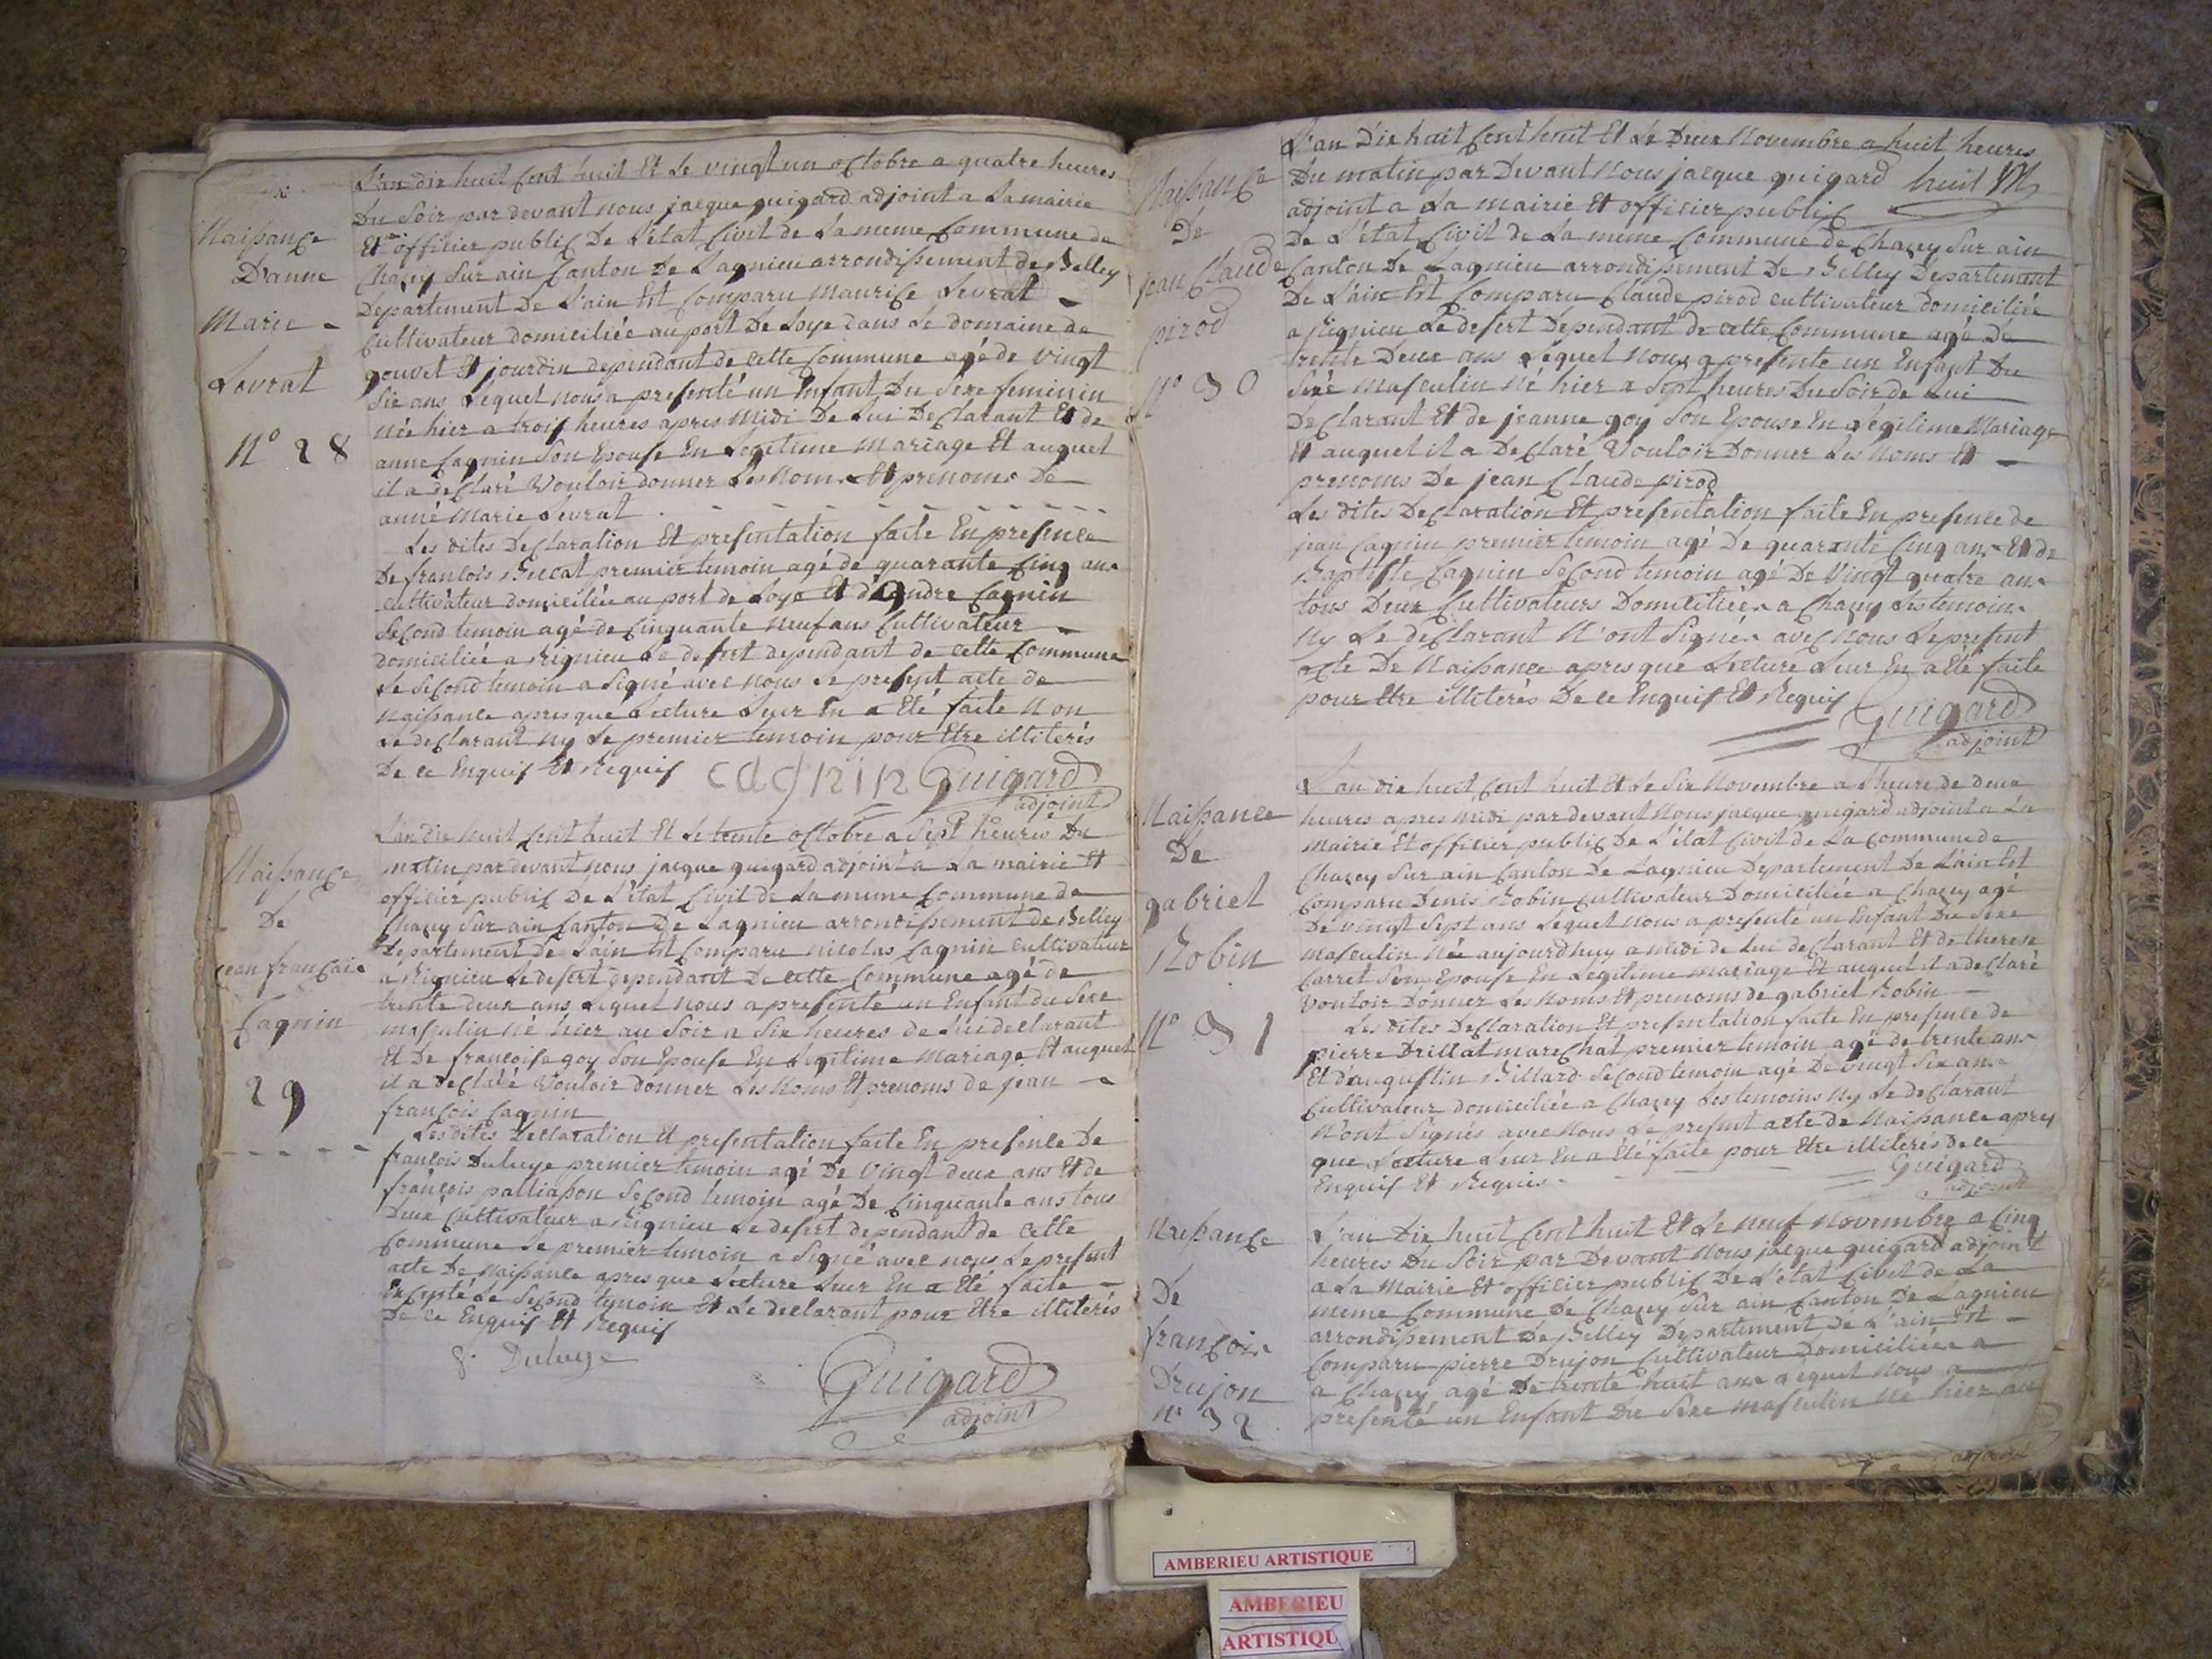 Naissance
D'anne
Marie -
Levrat
N° 28
L'an dix huit cent huit Et Le vingt un octobre a quatre heures
Du Soir par devant nous jacque guigard adjoint a La mairie
Et officier public De L'état Civil de La meme Commune de
Chazey Sur ain Canton De Lagnieu arrondissement de Belley
Departement De L'ain Est Comparu Maurice Levrat -
Cultivateur domiciliée au port De Loye dans Le domaine de
gouvet Et jourdin dependant de cette Commune agé de vingt
Six ans Lequel nous a presenté un Enfant Du Sexe feminin
née hier a trois heures apres midi De Lui Declarant Et de
anne Cagnin Son Epouse En Legitime mariage Et auquel
il a déclaré Vouloir donner Les Noms Et prenoms De
anne Marie Levrat
Les dites Declaration Et presentation faite En presence
De francois premier temoin agé de quarante Cinq ans
Cultivateur domiciliée au port de Loye Et d'andre Cagnin
Second temoin agé de Cinquante neuf ans Cultivateur -
domiciliée a Rignieu Le desert dependant de cette Commune
Le Second temoin a Signé avec nous Le present acte de
Naissance apres que Lecture Leur En a Eté faite Non
Le declarant ny Le premier temoin pour Etre illiterés
De ce Enquis Et Requis cagnin Guigard
adjoint
Naissance
De
jean françois
Cagnin
29
L'an dix huit Cent huit Et Le trente octobre a Sept heures Du
matin par devant nous jacque guigard adjoint a La mairie Et
officier public De L'état Civil de La meme Commune de
Chazey Sur ain Canton De Lagnieu arrondissement de Belley
Departement De L'ain Est Comparu nicolas Cagnin Cultivateur
a Rignieu Le desert dependant De cette Commune agé de
trente deux ans Lequel nous a presenté un Enfant du Sexe
masculin né hier au Soir a Six heures de Lui declarant
Et De françoise goy Son Epouse En Legitime mariage Et auquel
il a declaré Vouloir donner Les Noms Et prenoms de jean -
françois Cagnin
Les dites Declaration Et presentation faite En presence De
françois Duluye premier temoin agé De vingt deux ans Et de
françois palliasson Second temoin agé De Cinquante ans tous
Deux Cultivateur a Rignieu Le desert dependant de cette
Commune Le premier temoin a Signé avec nous Le present
acte De Naissance apres que Lecture Leur En a Eté faite -
Excepté Le Second temoin Et Le declarant pour Etre illiterés
De ce Enquis Et Requis
f. Duluye
Guigard
adjoint
Naissance
De
jean Claude
pirod
N° 30
L'an Dix huit Cent huit Et Le Deux Novembre a huit heures
Du matin par Devant Nous jacque guigard huit
adjoint a La mairie Et officier public
De L'état Civil de La meme Commune de Chazey Sur ain
Canton De Lagnieu arrondissement De Belley Departement
De L'ain Est Comparu Claude pirod cultivateur domiciliée
a Rignieu Le desert Dependant de cette Commune agé De
trente Deux ans Lequel nous a presenté un Enfant Du
Sexe masculin Né hier a Sept heures Du Soir de Lui
Declarant Et de jeanne goy Son Epouse En Legitime Mariage
Et auquel il a Declaré Vouloir Donner Les Noms Et -
prenoms De jean Claude pirod
Les dites Declaration Et presentation faite En presence de
jean Cagnin premier temoin agé De quarante Cinq ans Et de
Baptiste Cagnin Second temoin agé De Vingt quatre ans
tous Deux Cultivateurs Domiciliées a Chazey Les temoins
Ny Le declarant N'ont Signés avec Nous Le present
acte De Naissance apres que Lecture Leur En a Eté faite
pour Etre illiterés De ce Enquis Et Requis
Guigard
adjoint
Naissance
De
gabriel
Robin
N° 31
L'an dix huit Cent huit Et Le Six Novembre a L'heure de deux
heures apres midi par devant Nous jacque guigard adjoint a La
mairie Et officier public De L'état Civil de La Commune de
Chazey Sur ain Canton de Lagnieu Departement De L'ain Est
Comparu Denis Robin Cultivateur Domiciliée a Chazey agé
De vingt Sept ans Lequel nous a presenté un Enfant Du Sexe
masculin Née aujourdhuy a midi de Lui declarant Et de therese
Carret Son Epouse En Legitime mariage Et auquel il a declaré
Vouloir Donner Les Noms Et prenoms de gabriel Robin -
Les dites Declaration Et presentation faite En presence de
pierre Drillat marechal premier temoin agé de trente ans
Et d'augustin Billard Second temoin agé De vingt Six ans
Cultivateur domiciliée a Chazey Les temoins Ny Le declarant
N'ont Signés avec Nous Le present acte de Naissance apres
que Lecture Leur En a Eté faite pour Etre illiterés de ce
Enquis Et Requis
Guigard
adjoint
Naissance
De
françois
Drujon
N° 32
L'an Dix huit Cent huit Et Le Neuf Novembre a Cinq
heures Du Soir par Devant Nous jacque guigard adjoint
a La Mairie Et officier public De L'état Civil de La
meme Commune De Chazey Sur ain Canton De Lagnieu
arrondissement De Belley Departement de L'ain Est -
Comparu pierre Drujon Cultivateur Domiciliée a
a Chazey agé De trente huit ans Lequel Nous a
presenté un Enfant Du Sexe masculin Né hier au
adjoint
AMBERIEU ARTISTIQUE
AMBERIEU
ARTISTIQU